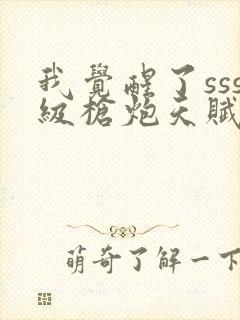 我覺醒了sss
級槍炮天賦
萌奇了解一下